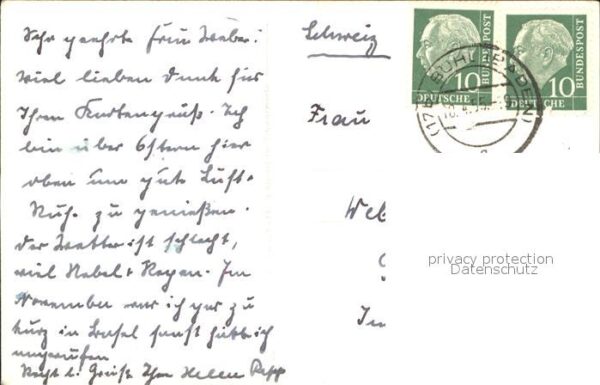 Sehr geehrte Frau Weber!
Viel lieben Dank für
Ihren Kartengruß. Ich
bin über Ostern hier
oben um gute Luft +
Ruh. zu genießen.
Das Wetter ist schlecht,
viel Nebel + Regen. Im
November war ich gar zu
kurz in Basel sonst hätte ich
angerufen
Recht l. Grüße Ihre Helen Papp
Schweiz
Frau
Web
In
10
DEUTSCHE
BUNDESPOST
10
DEUTSCHE
BUNDESPOST
BÜHL (BADEN)
privacy protection
Datenschutz